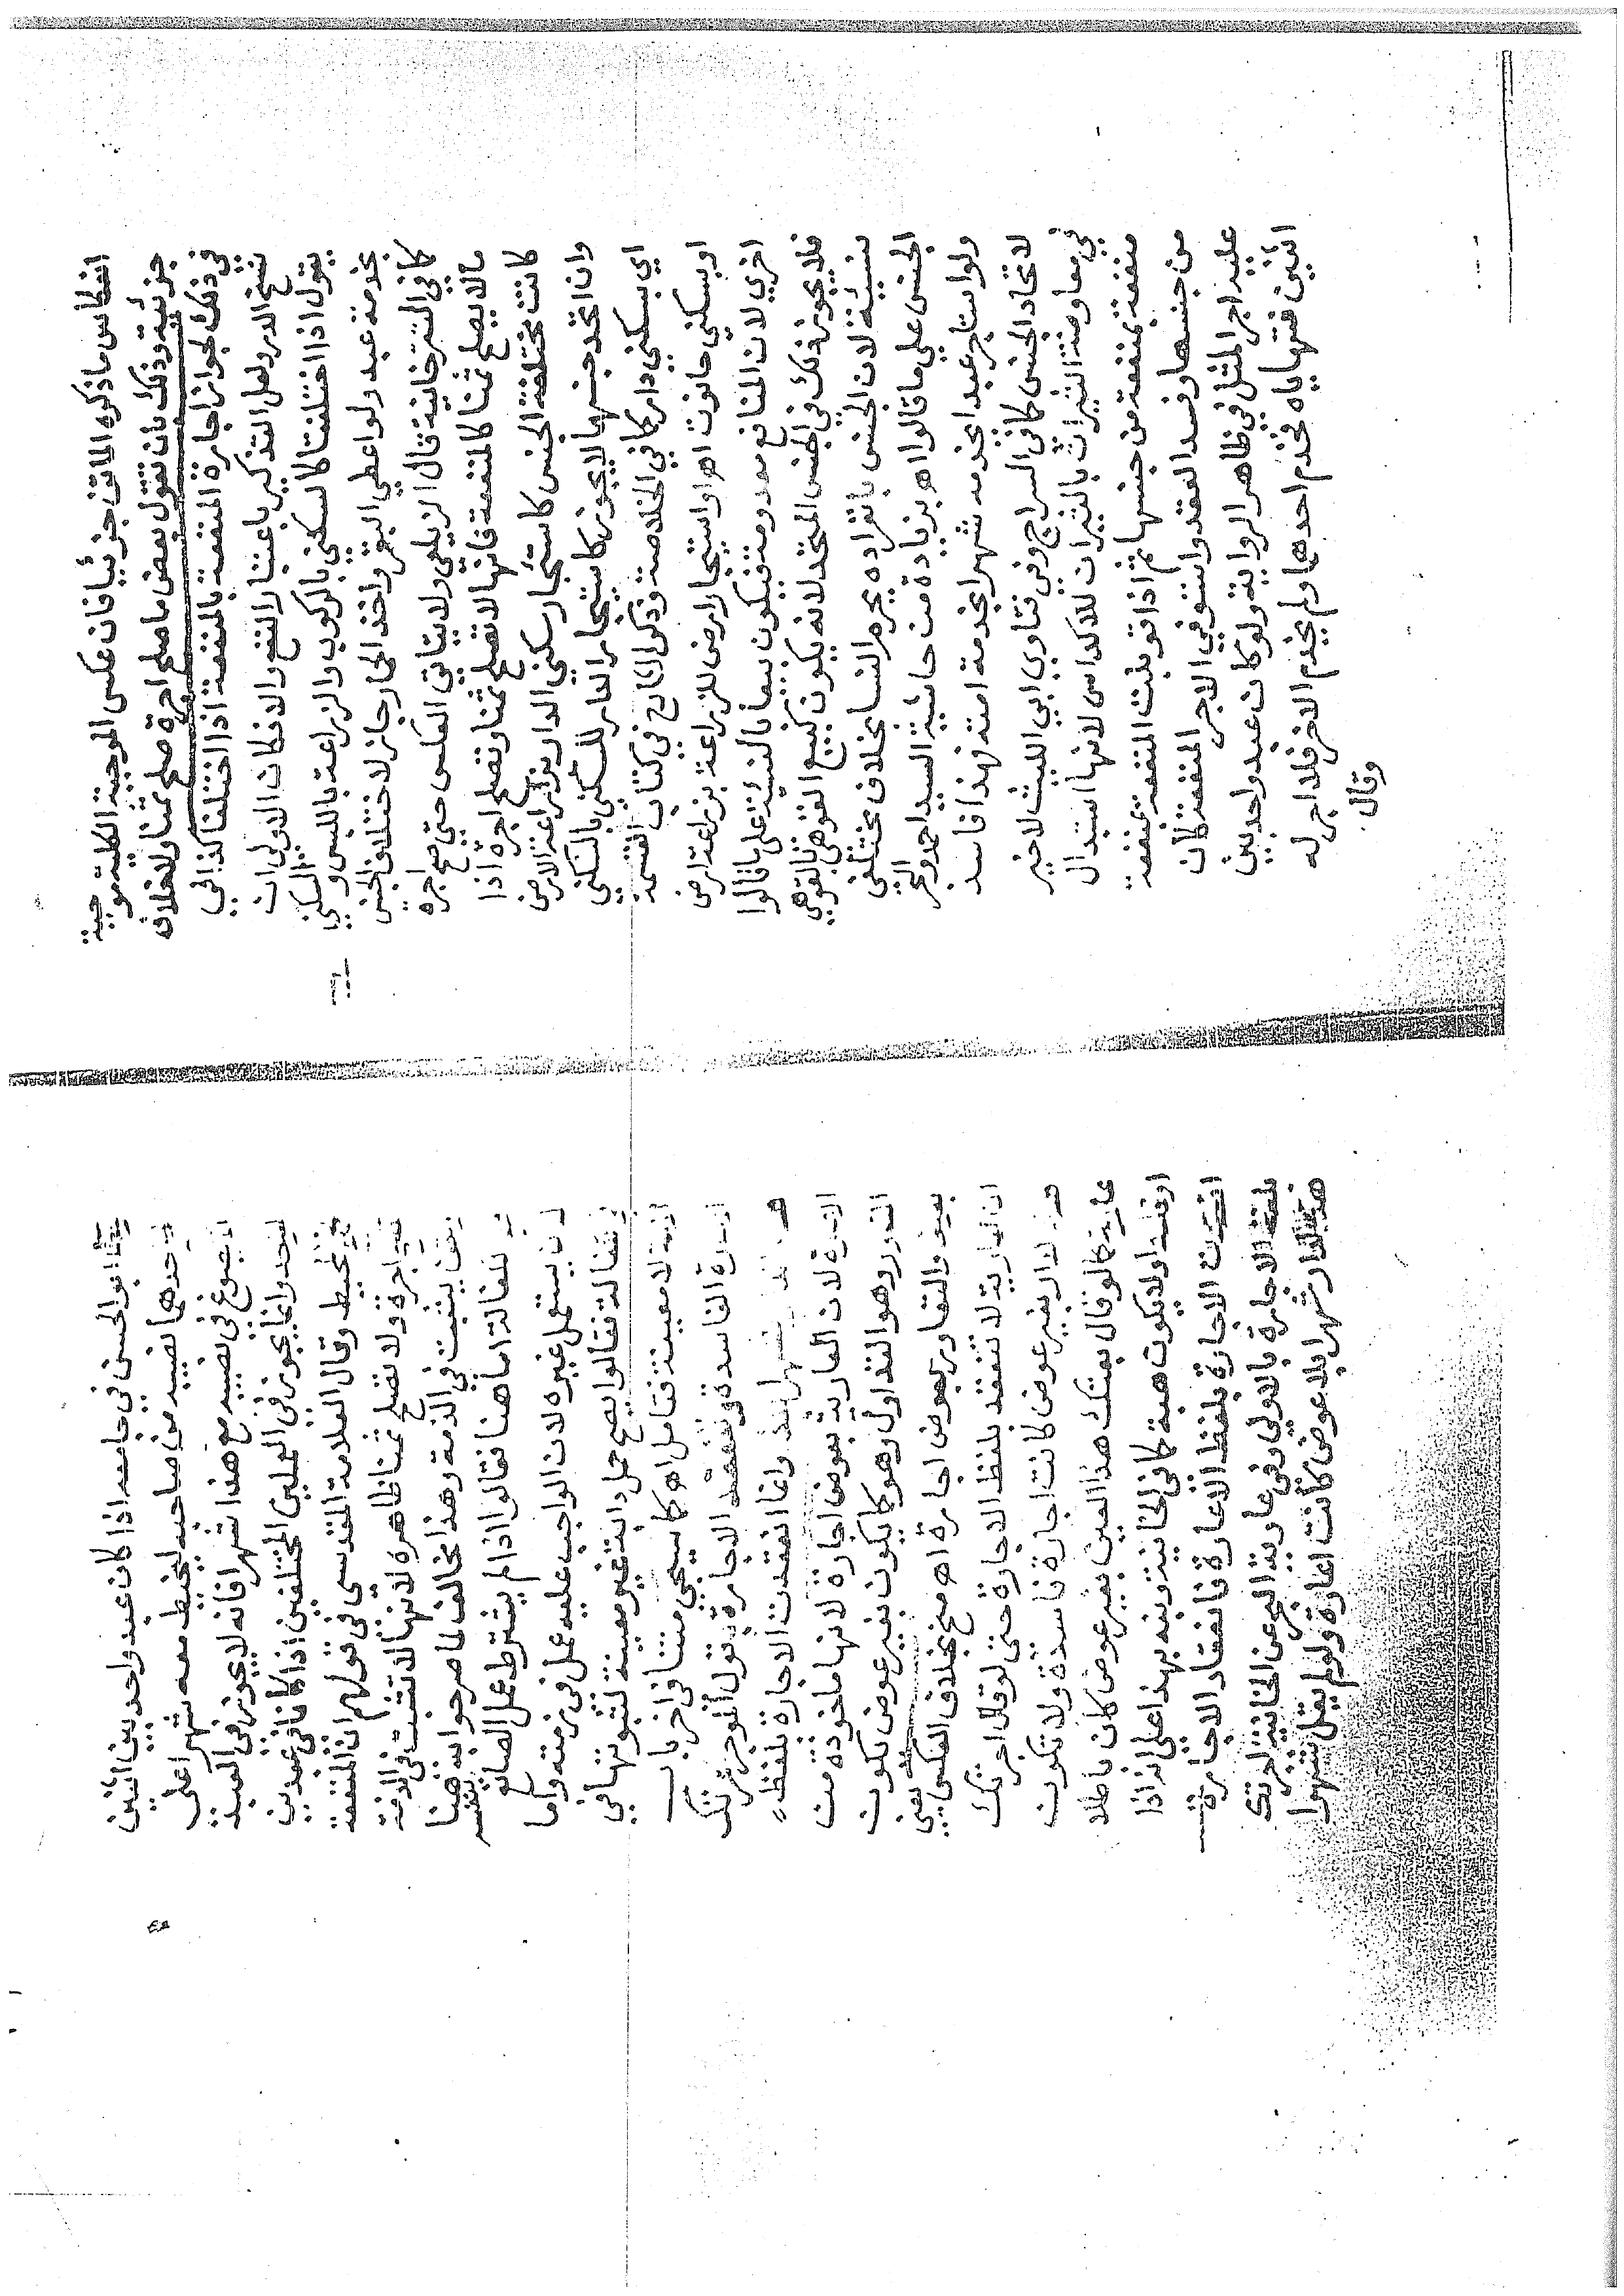 انعكاس ما ذكره الماتن جزئيا فان عكس الموجبة الكلية موجبة
جزئية وذلك بان تقول بعض ما صلح اجرة صلح ثمنا ولا خلاف
في ذلك لجواز اجارة المنفعة بالمنفعة اذا اختلفنا كذا في
شرح الدرر ولعل التذكير باعتبار النفع والا فكان الاولى ان
يقول اذا اختلفتا كالسكني بالركوب والزراعة باللبس والسكني
بخدمة عبد ولو اعطي البقر واخذ الحمار جاز لاختلاف الجنس
كما في التترخانية قال الزيلعي ولا يتاتي العكس حتي صح اجره
مالا يصلح ثمنا كالمنفعة فانها لا تصلح ثمنا وتصلح اجرة اذا
كانت مختلفة الجنس كاستئجار سكني الدار بزراعة الارض
وان اتحد جنسهما لا يجوز كاستيجار الدار للسكني بالسكني
اي بسكني دار كما في الخلاصة وذكر الشارح في كتاب القسمة
او بسكني حانوت اهـ او استيجار ارض للزراعة بزراعة ارض
اخري لان المنافع معدومة فيكون بيعا بالنسيئة على ما قالوا
فلا يجوز ذلك في الجنس المتحد لانه يكون كبيع القوهي بالقوهي
نسيئة لان الجنس بانفراده يحرم النسا بخلاف مختلفي
الجنس علي ما قالوا اهـ بزيادة من حاشية السيد احمد والبحر
ولو استاجر عبدا يخدمه شهرا بخدمة امته فهذا فاسد
لاتحاد الجنس كما في السراج وفي فتاوي ابي الليث لا خير
في معاوضة الثيران بالثيران للاكداس لانها استبدال
منفعة بمنفعة من جنسها ثم اذا قوبلت المنفعة بمنفعة
من جنسها وفسد العقد واستوفي الاجر المنفعة كان
عليه اجر المثل في ظاهر الرواية ولو كان عبد واحد بين
اثنين فتهاياه فخدم احدهما ولم يخدم الاخر فلا اجر له
وقال
ابو الحسن في جامعه اذا كان عبد واحد بين اثنين
احدهما نصيبه من صاحبه ليخيط معه شهرا على
ان يصوغ في نصيبه مع هذا شهرا فانه لا يجوز في العبد
الواحد وانما يجوز في العملين المختلفين اذا كانا في عبدين
المحيط وقال العلامة المقدسي في قولهم ان المنفعة
اجرة ولا تصلح ثمنا ظاهره لانها لا تثبت في الذمة
يثبت في الذمة وهذا مخالف لما صرحوا به هنا
اما هنا فقالوا اذا لم يشترط عمل الصانع بنفسه
ان يستعمل غيره لان الواجب عليه عمل في ذمته واما
فقالوا يصح حمل دابة غير معينة لثبوتها في
الذمة لا معينة فتامل اهـ كما سيجي متنا في اخر باب
الاجارة الفاسدة وتنعقد الاجارة بقول الموجر اجرتك
هذه شهرا بكذا وانما انعقدت الاجارة بلفظ
الاعارة لان العارية بعوض اجارة لانها ماخوذة من
التعاور وهو التداول وهو كما يكون بغير عوض يكون
بعوض والتعاور بعوض اجارة اهـ منح بخلاف العكس يعني
ان العارية لا تنعقد بلفظ الاجارة حتى لو قال اجرتك
هذه الدار بغير عوض كانت اجارة فاسدة ولا تكون
عارية كما لو قال بعتك هذا العين بغير عوض كان باطلا
او فاسدا ولا يكون هبة كما في الخانية ونبه بهذا على انه اذا
انعقدت الاجارة بلفظ الاعارة فانعقاد الاجارة
بلفظ الاجارة بالاولي وفي عارية البحر عن الخانية اجرتك
هذه الدار شهرا بلا عوض كانت اعارة ولو لم يقل شهرا